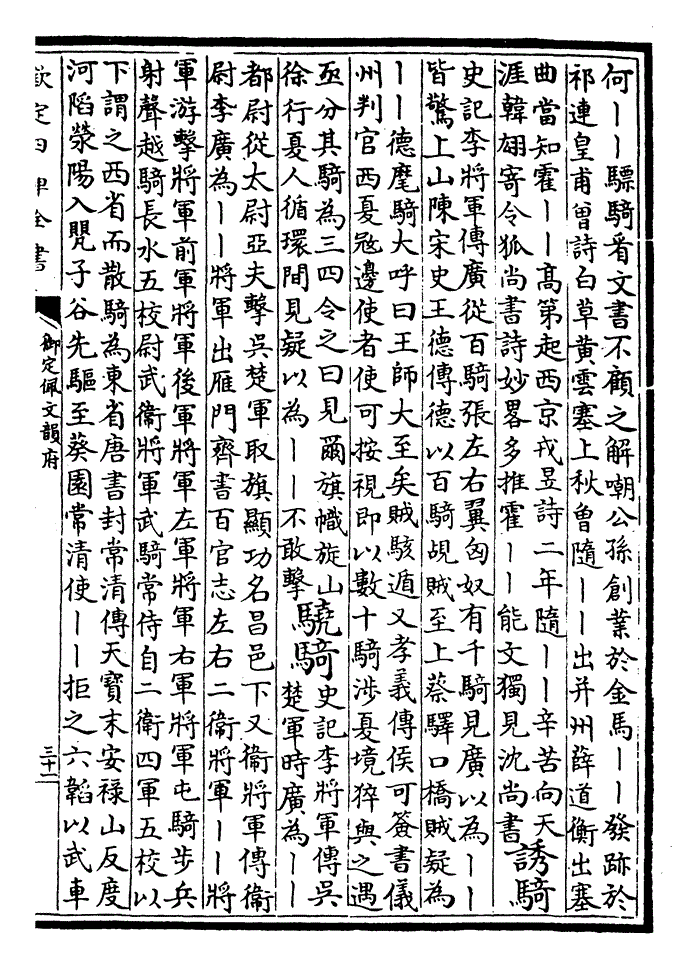 何丨丨驃騎看文書不顧之解嘲公孫創業於金馬丨丨發跡於
祁連皇甫曾詩白草黄雲塞上秋曾隨丨丨出并州薛道衡出塞
曲當知霍丨丨髙第起西京戎昱詩二年隨丨丨辛苦向天
涯韓翃寄令狐尚書詩妙畧多推霍丨丨能文獨見沈尚書
誘騎
史記李將軍傳廣從百騎張左右翼匈奴有千騎見廣以為丨丨
皆驚上山陳宋史王德傳德以百騎覘賊至上蔡驛口橋賊疑為
丨丨德麾騎大呼曰王師大至矣賊駭遁又孝義傳侯可簽書儀
州判官西夏冦邊使者使可按視即以數十騎涉夏境猝與之遇
亟分其騎為三四令之曰見爾旗幟旋山
徐行夏人循環間見疑以為丨丨不敢擊
驍騎
史記李將軍傳吳
楚軍時廣為丨丨
都尉從太尉亞夫擊吳楚軍取旗顯功名昌邑下又衞將軍傳衞
尉李廣為丨丨將軍出雁門齊書百官志左右二衞將軍丨丨將
軍游擊將軍前軍將軍後軍將軍左軍將軍右軍將軍屯騎步兵
射聲越騎長水五校尉武衞將軍武騎常侍自二衞四軍五校以
下謂之西省而散騎為東省唐書封常清傳天寶末安禄山反度
河陷滎陽入甖子谷先驅至葵園常清使丨丨拒之六韜以武車
欽定四庫全書
御定佩文韻府
三十一